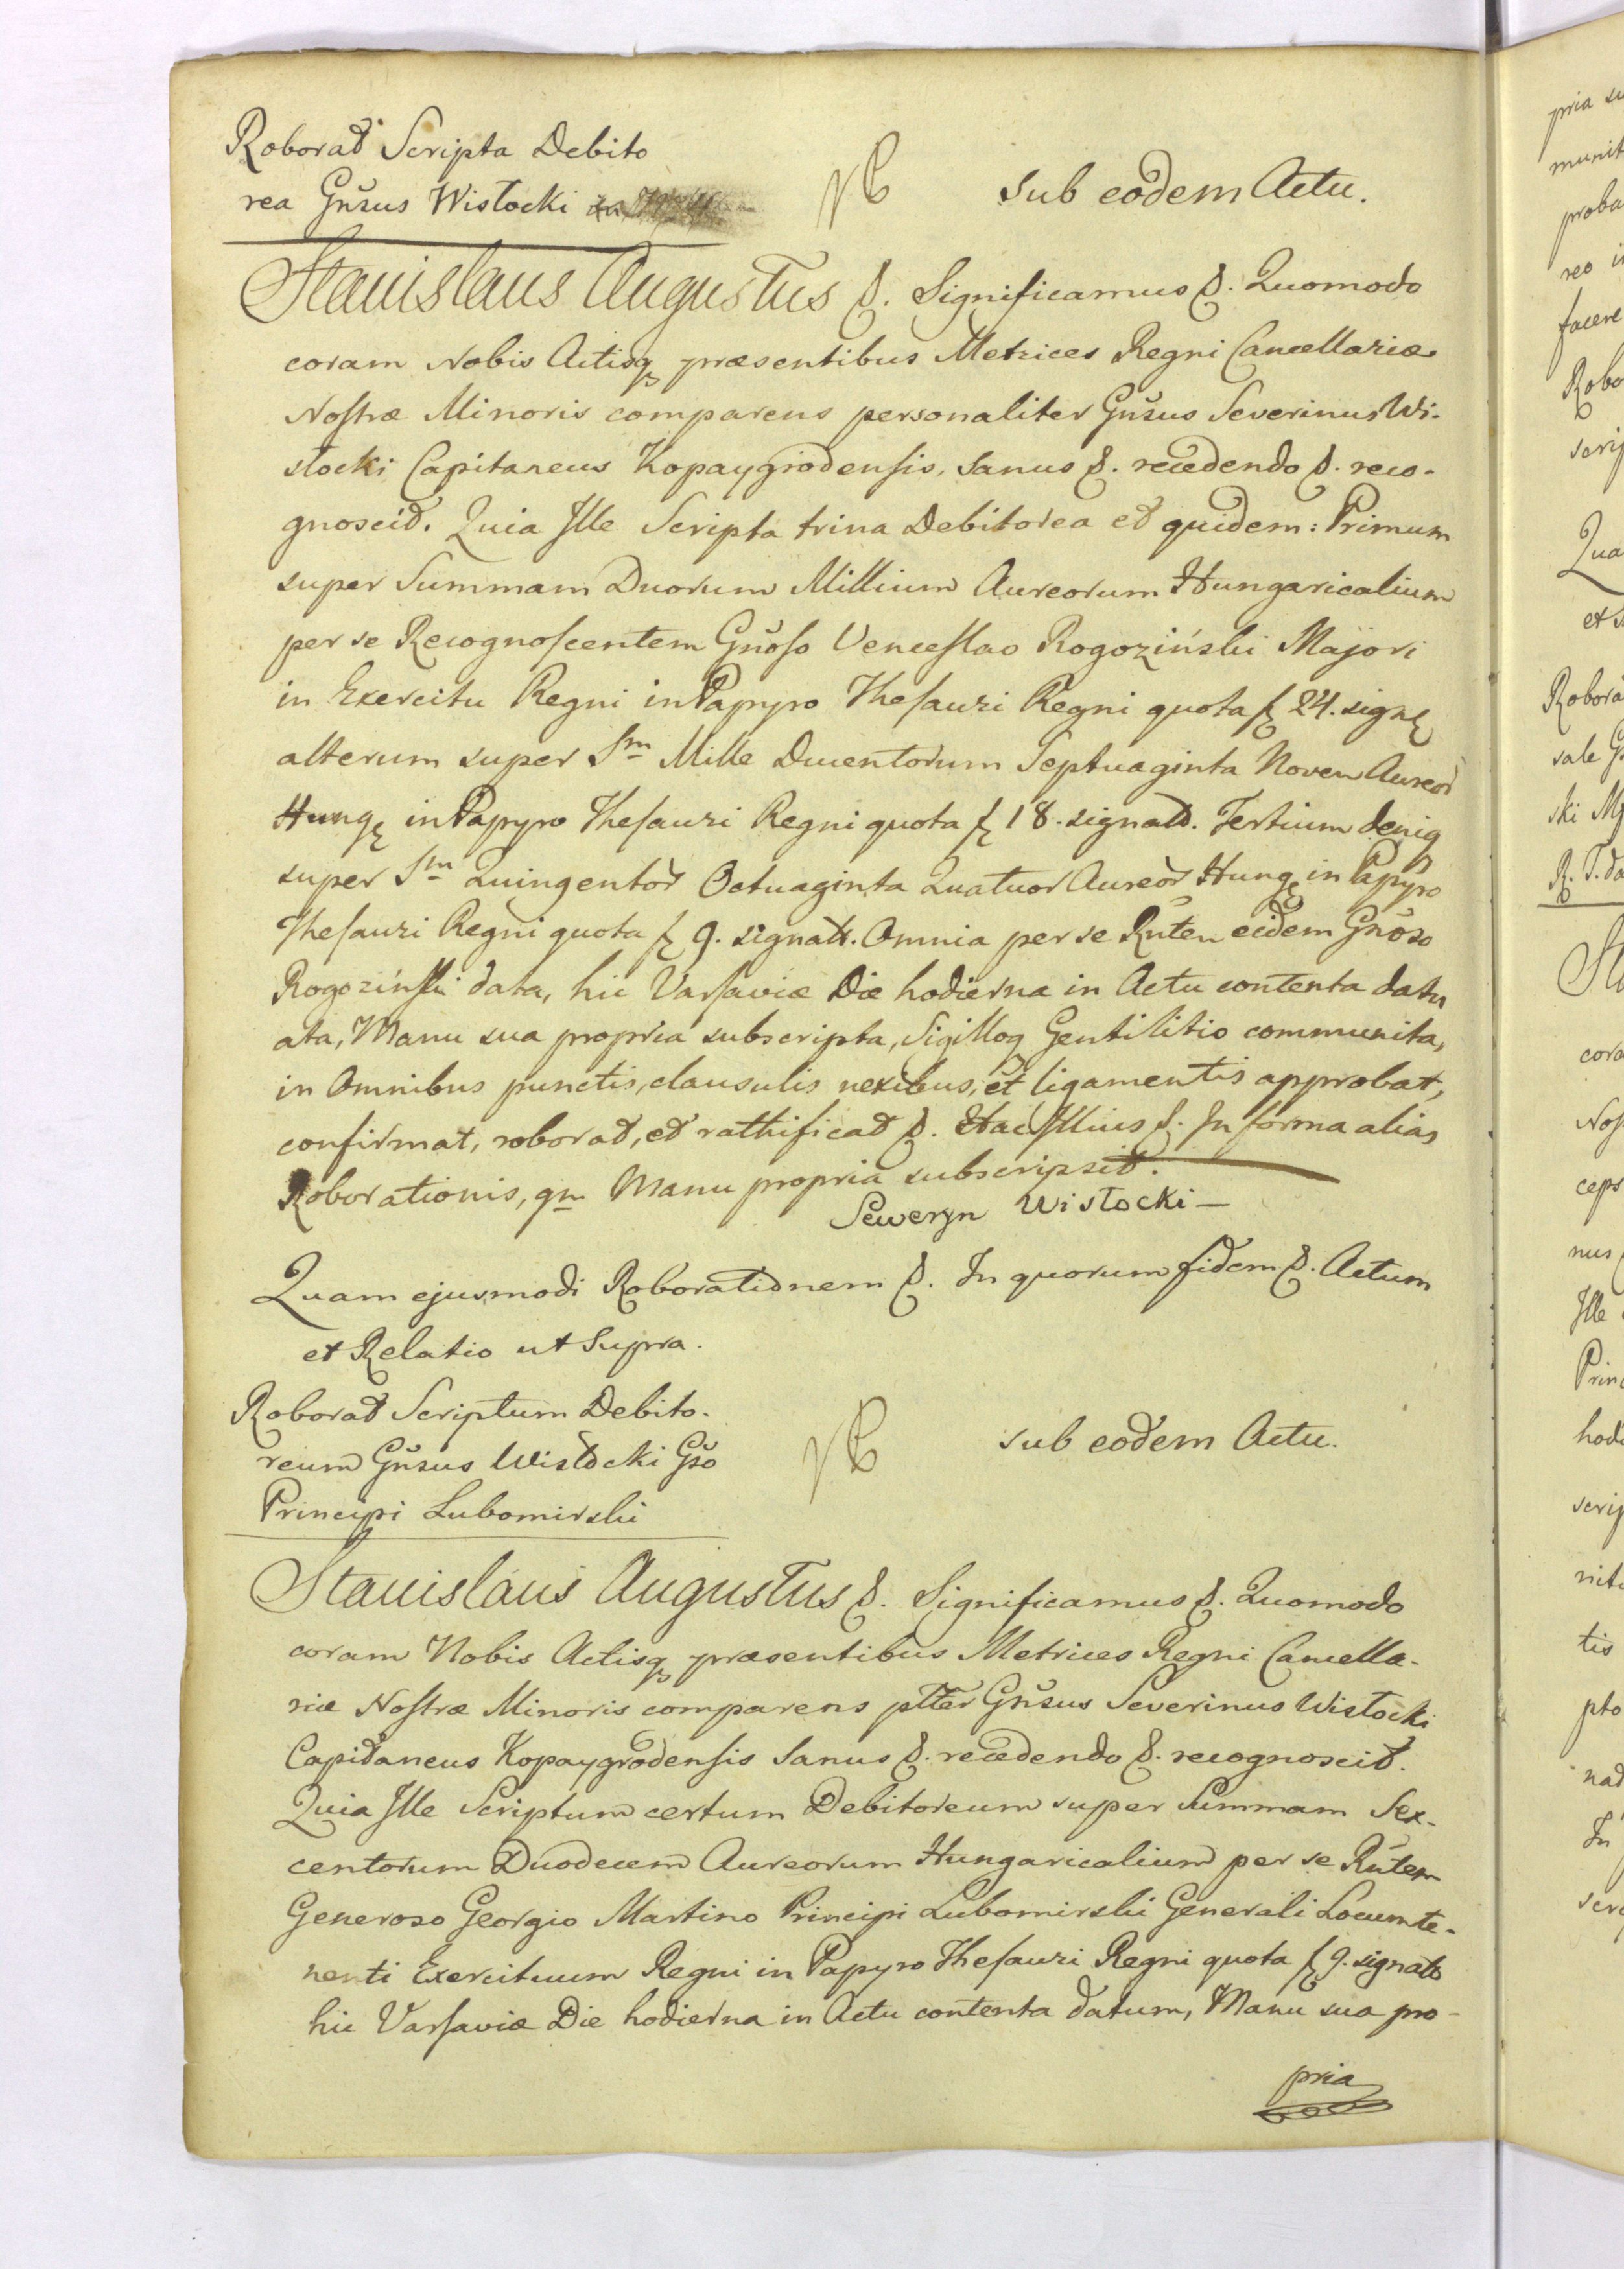 Roborat Scripta Debito
rea Gñsus Wisłocki
Sub eodem Actu.
Stanislaus Augustus &. Significamus &. Quomodo
coram Nobis Actisq præsentibus Metrices Regni Cancellariæ
Nostræ Minoris comparens personaliter Gñsus Severinus Wi-
słocki Capitaneus Kopaygrodensis, Sanus &. recedendo &. reco-
gnoscit. Quia Ille Scripta trina Debitorea et quidem: Primum
super Summam Duorum Millium Aureorum Hungaricalium
per se Recognoscentem Gñoso Venceslao Rogoziński Majori
in Exercitu Regni in Papyro Thesauri Regni quota f 24. sign
alterum super Sm Mille Ducentorum Septuaginta Novem Aureor
Hung in Papyro Thesauri Regni quota f 18. signato. Tertium deniq
super Sm Quingentor Octuaginta Quatuor Aureor Hung in Papyro
Thesauri Regni quota f 9. signato. Omnia per se Rñtem eidem Gñoso
Rogoziński data, hic Varsaviæ Die hodierna in Actu contenta datu
ata, Manu sua propria subscripta, Sigilloq Gentilitio communita,
in Omnibus punctis, clausulis nexibus, et ligamentis approbat,
confirmat, roborat, et rathificat &. Hac Illius &. In forma alias
Roborationis, qm Manu propria subscripsit.
Seweryn Wisłocki —
Quam ejusmodi Roborationem &. In quorum fidem &. Actum
et Relatio ut Supra.
Roborat Scriptum Debito-
reum Gñsus Wisłocki Gso
Principi Lubomirski
Sub eodem Actu.
Stanislaus Augustus &. Significamus &. Quomodo
coram Nobis Actisq præsentibus Metrices Regni Cancella-
riæ Nostræ Minoris comparens pltter Gñsus Severinus Wisłocki
Capitaneus Kopaygrodensis Sanus &. recedendo &. recognoscit.
Quia Ille Scriptum certum Debitoreum super Summam Sex-
centorum Duodecem Aureorum Hungaricalium per se Rñtem
Generoso Georgio Martino Principi Lubomirski Generali Locumte-
nenti Exercituum Regni in Papyro Thesauri Regni quota f 9. signato
hic Varsaviæ Die hodierna in Actu contenta datum, Manu sua pro-
pria